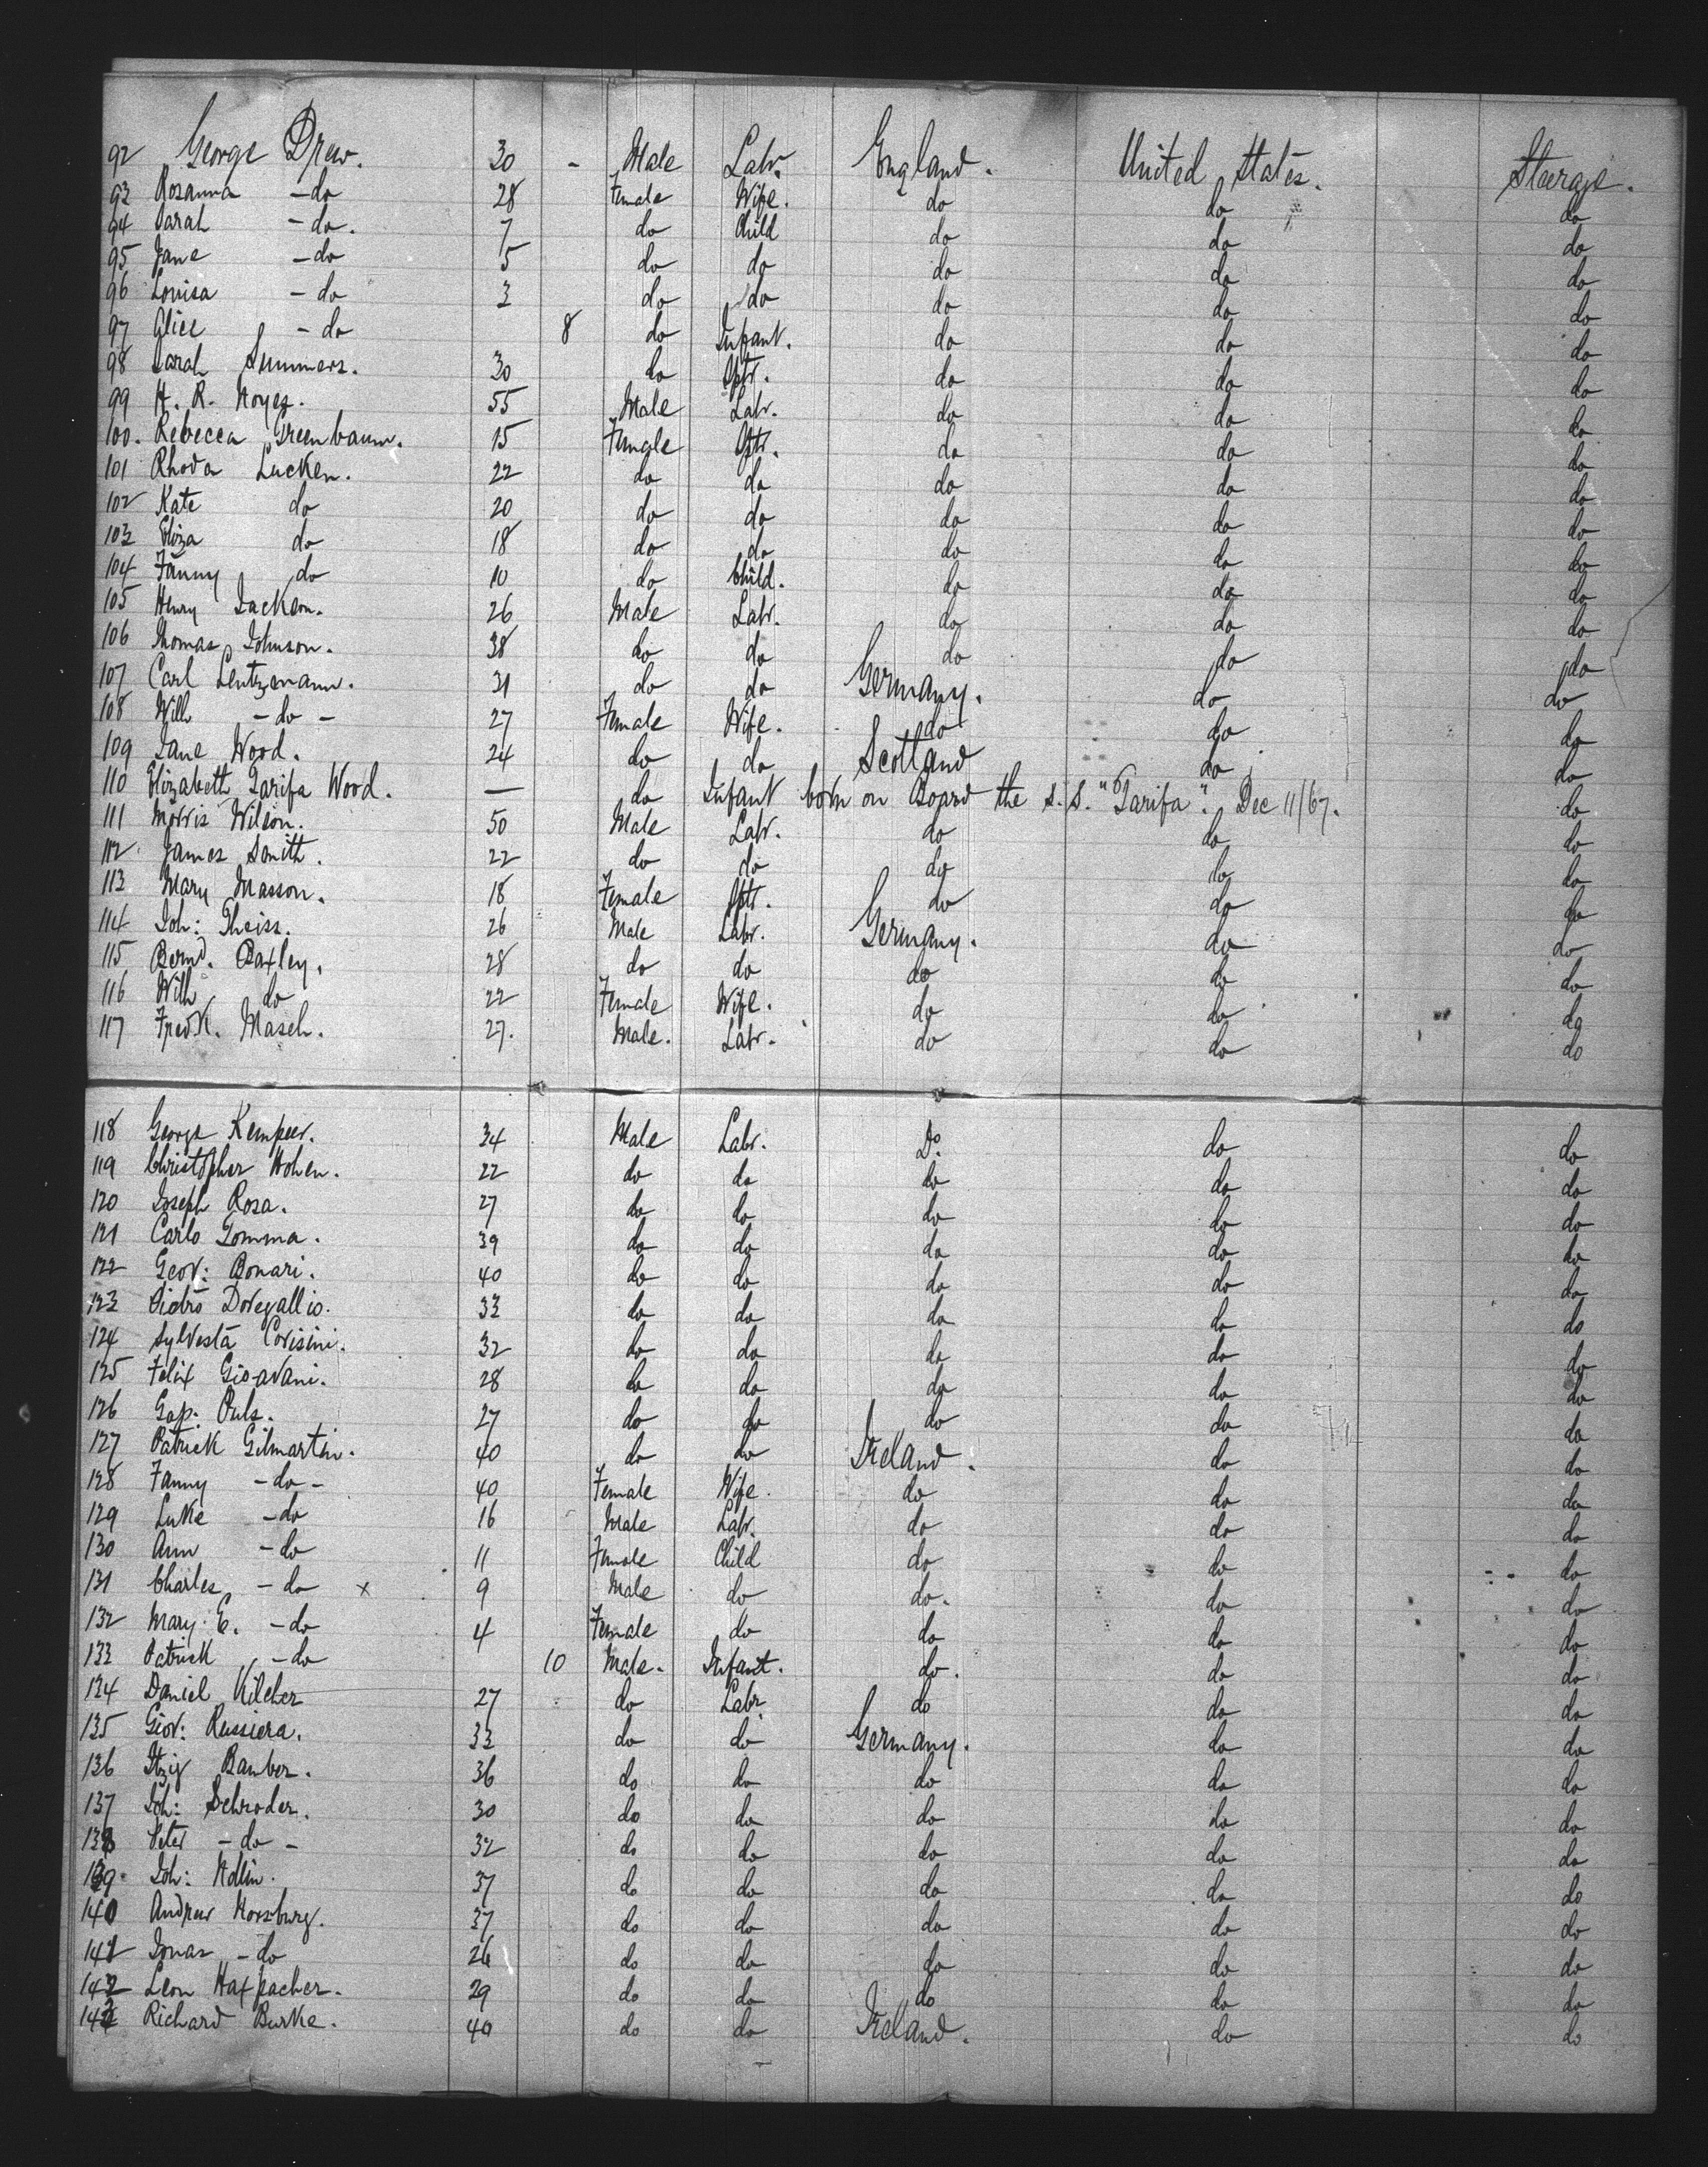 92 George Drew. 30 - Male Labr. England. United States. Steerage.
93 Rosanna - do 28 Female Wife. do do do
94 Sarah - do. 7 do Child do do do
95 Jane - do 5 do do do do do
96 Louisa - do 3 do do do do do
97 Alice - do 8 do Infant. do do do
98 Sarah Summers. 30 do Sptr. do do do
99 H. R. Noyes. 55 Male Labr. do do do
100. Rebecca Greenbaum. 15 Female Sptr. do do do
101 Rhoda Lucken. 22 do do do do do
102 Kate do 20 do do do do do
103 Eliza do 18 do do do do do
104 Fanny do 10 do Child. do do do
105 Henry Jackson. 26 Male Labr. do do do
106 Thomas Johnson. 38 do do do do do
107 Carl Lentzmann. 31 do do Germany. do do
108 Wilh - do - 27 Female Wife. do do do
109 Jane Wood. 24 do do Scotland do do
110 Elizabeth Tarifa Wood. — do Infant born on Board the S.S. "Tarifa". Dec 11/67. do
111 Morris Wilson. 50 Male Labr. do do do
112 James Smith. 22 do do do do do
113 Mary Masson. 18 Female Sptr. do do do
114 Joh: Theiss. 26 Male Labr. Germany. do do
115 Bernd. Baxley. 28 do do do do do
116 Wilh do 22 Female Wife. do do do
117 Fredk. Masch. 27. Male. Labr. do do do
118 George Kempeer. 34 Male Labr. Do. do do
119 Christopher Hohen. 22 do do do do do
120 Joseph Rosa. 27 do do do do do
121 Carlo Tomma. 39 do do do do do
122 Geov: Bonari. 40 do do do do do
123 Pietro Dovegallio. 33 do do do do do
124 Sylvesta Corisini. 32 do do do do do
125 Felix Gioavani. 28 do do do do do
126 Gap: Puls. 27 do do do do do
127 Patrick Gilmartin. 40 do do Ireland. do do
128 Fanny - do - 40 Female Wife. do do do
129 Luke - do 16 Male Labr. do do do
130 Ann - do 11 Female Child do do do
131 Charles - do x 9 Male do do. do do
132 Mary E. - do 4 Female do do do do
133 Patrick - do 10 Male. Infant. do. do do
134 Daniel Kilcher 27 do Labr. do do do
135 Giov: Russiera. 33 do do Germany. do do
136 Itzig Bamber. 36 do do do do do
137 Joh: Schroder. 30 do do do do do
138 Peter - do - 32 do do do do do
139 Joh: 37 do do do do do
140 Andrew Horsburg. 37 do do do do do
141 Jonas - do 26 do do do do do
142 Leon Haxpacher. 29 do do do do do
143 Richard Burke. 40 do do Ireland. do do